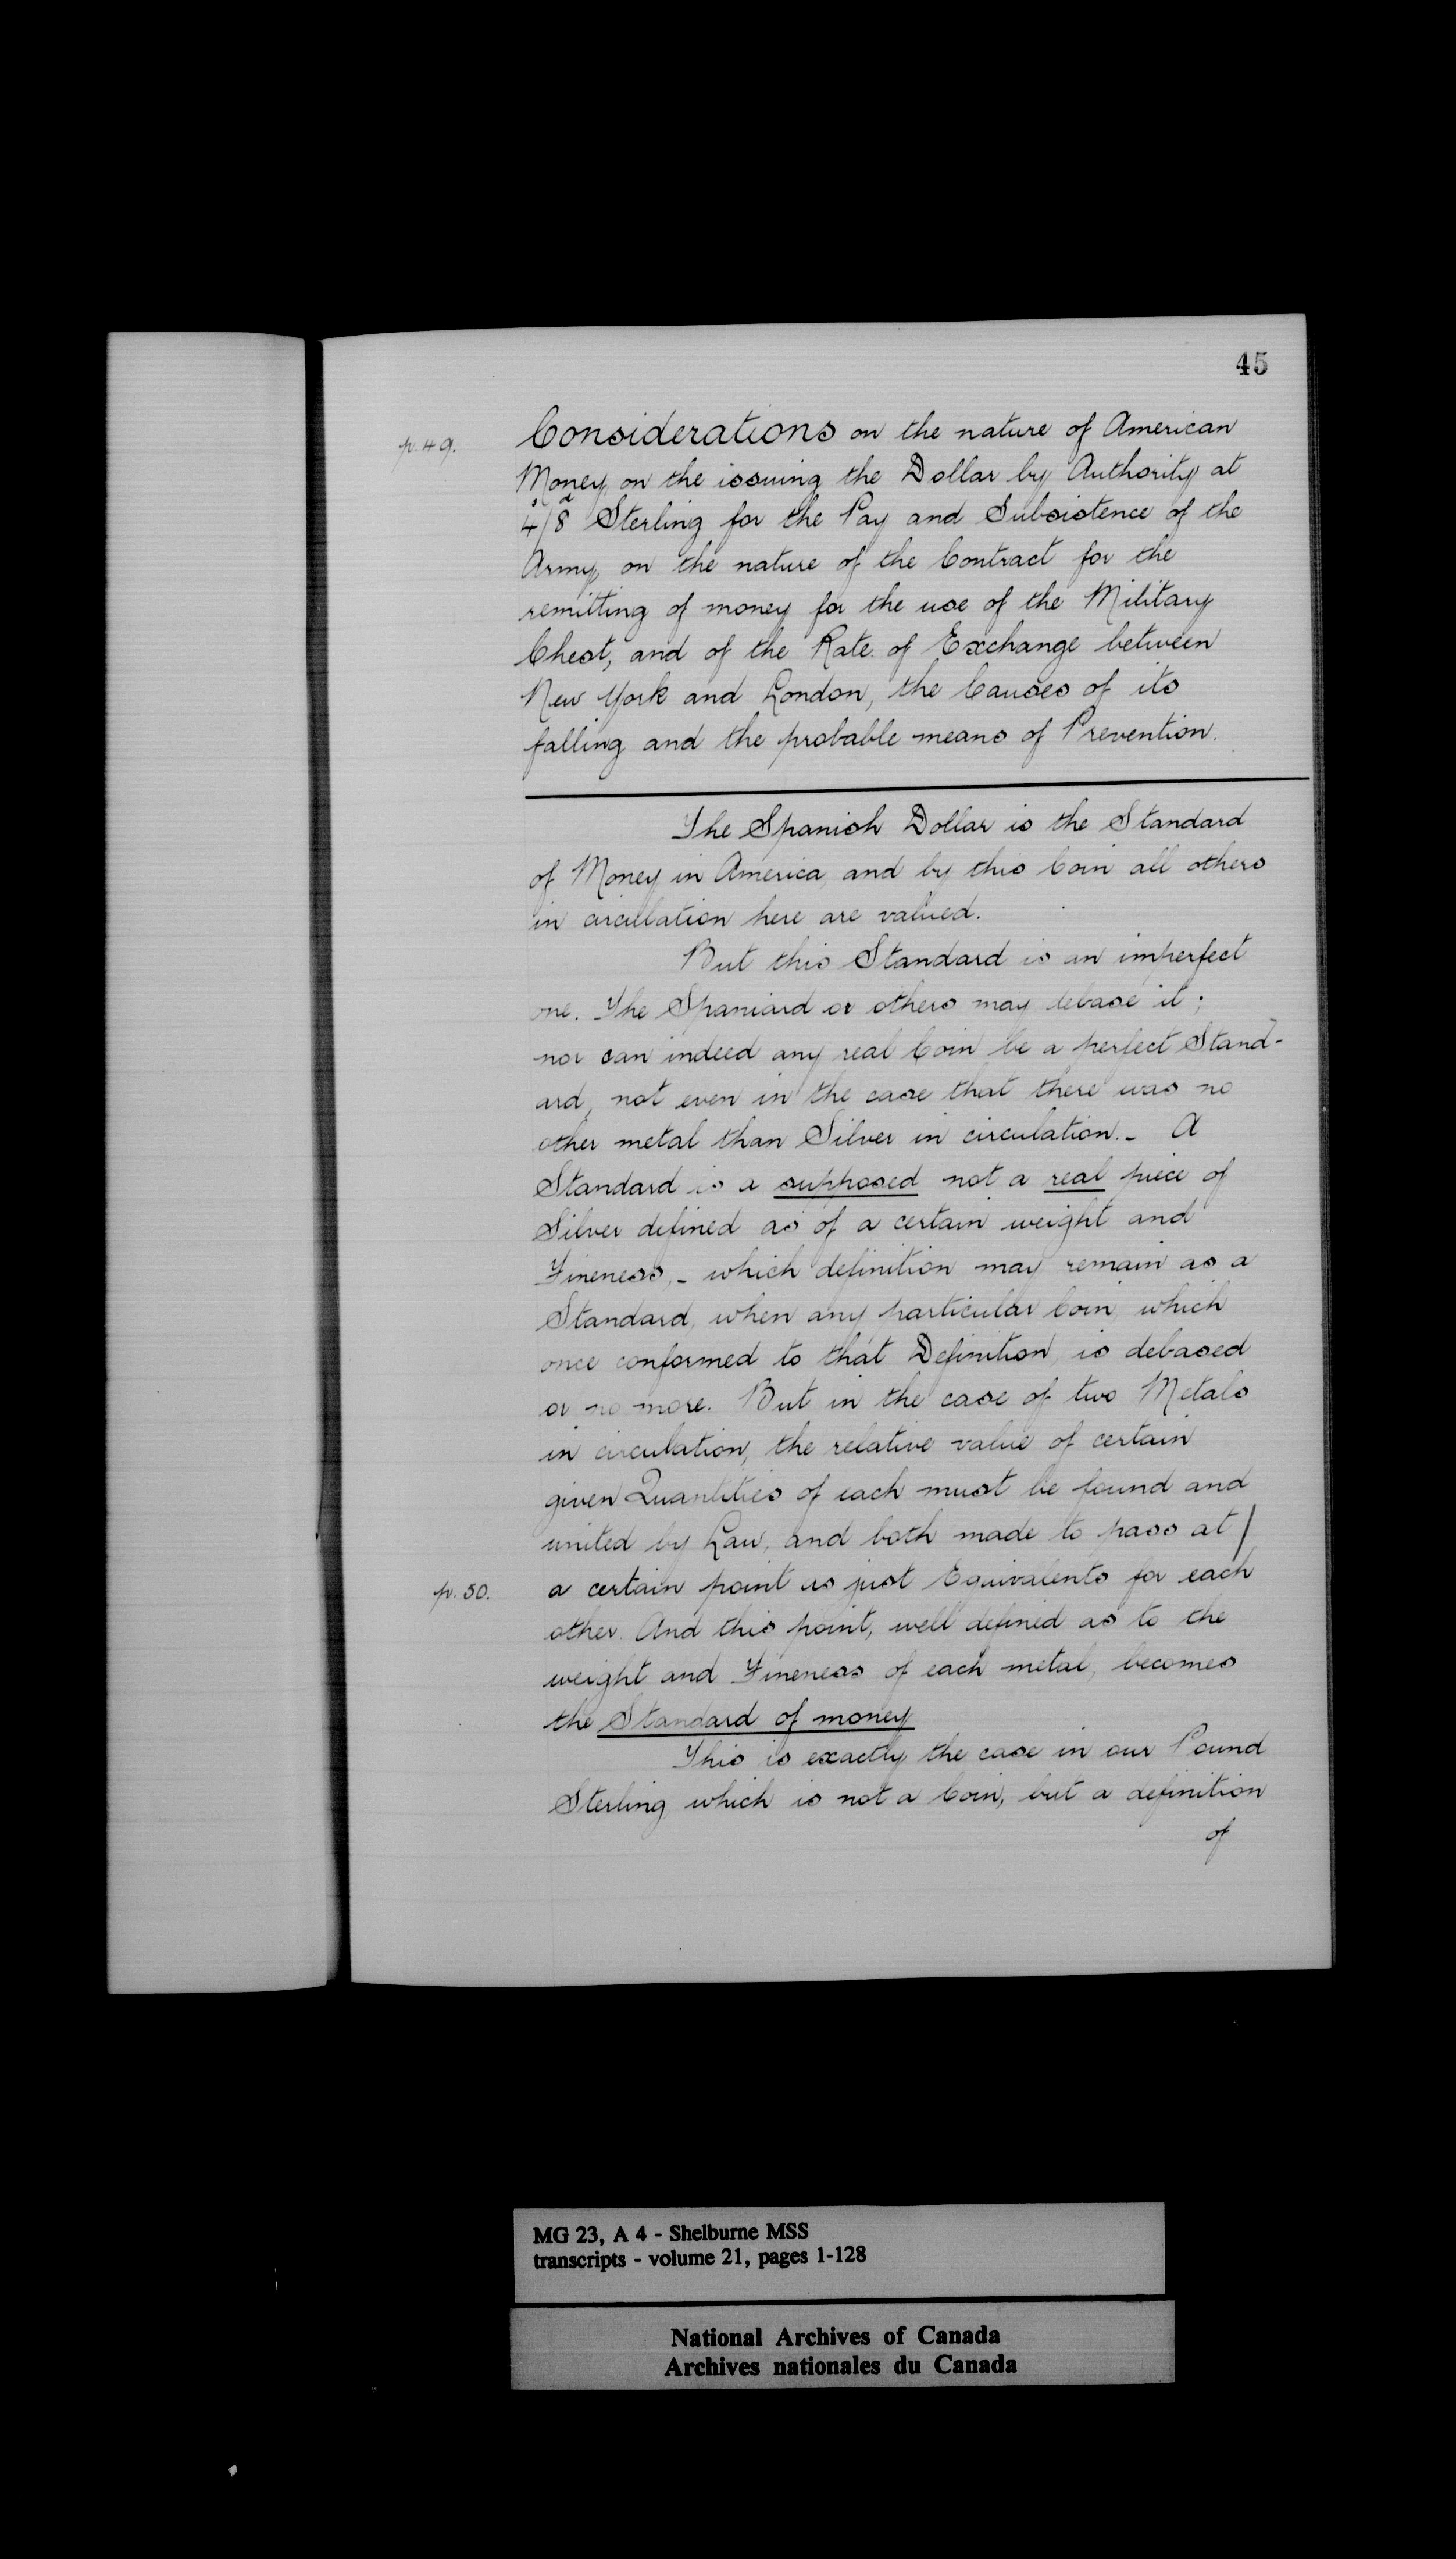 45
p. 49.
Considerations on the nature of American
Money, on the issuing the Dollar by Authority at
4s/8d Sterling for the Pay and Subsistence of the
Army, on the nature of the Contract for the
remitting of money for the use of the Military
Chest, and of the Rate of Exchange between
New York and London, the Causes of its
falling and the probable means of Prevention.
The Spanish Dollar is the Standard
of Money in America, and by this Coin all others
in circulation here are valued.
But this Standard is an imperfect
one. The Spaniard or others may debase it;
nor can indeed any real Coin be a perfect Stand-
ard, not even in the case that there was no
other metal than Silver in circulation. - A
Standard is a supposed not a real piece of
Silver defined as of a certain weight and
Fineness, - which definition may remain as a
Standard, when any particular Coin, which
once conformed to that Definition, is debased
or no more. But in the case of two Metals
in circulation, the relative value of certain
given Quantities of each must be found and
united by Law, and both made to pass at /
p. 50.
a certain point as just Equivalents for each
other. And this point, well defined as to the
weight and Fineness of each metal, becomes
the Standard of money
This is exactly the case in our Pound
Sterling, which is not a Coin, but a definition
of
MG 23, A 4 - Shelburne MSS
transcripts - volume 21, pages 1-128
National Archives of Canada
Archives nationales du Canada